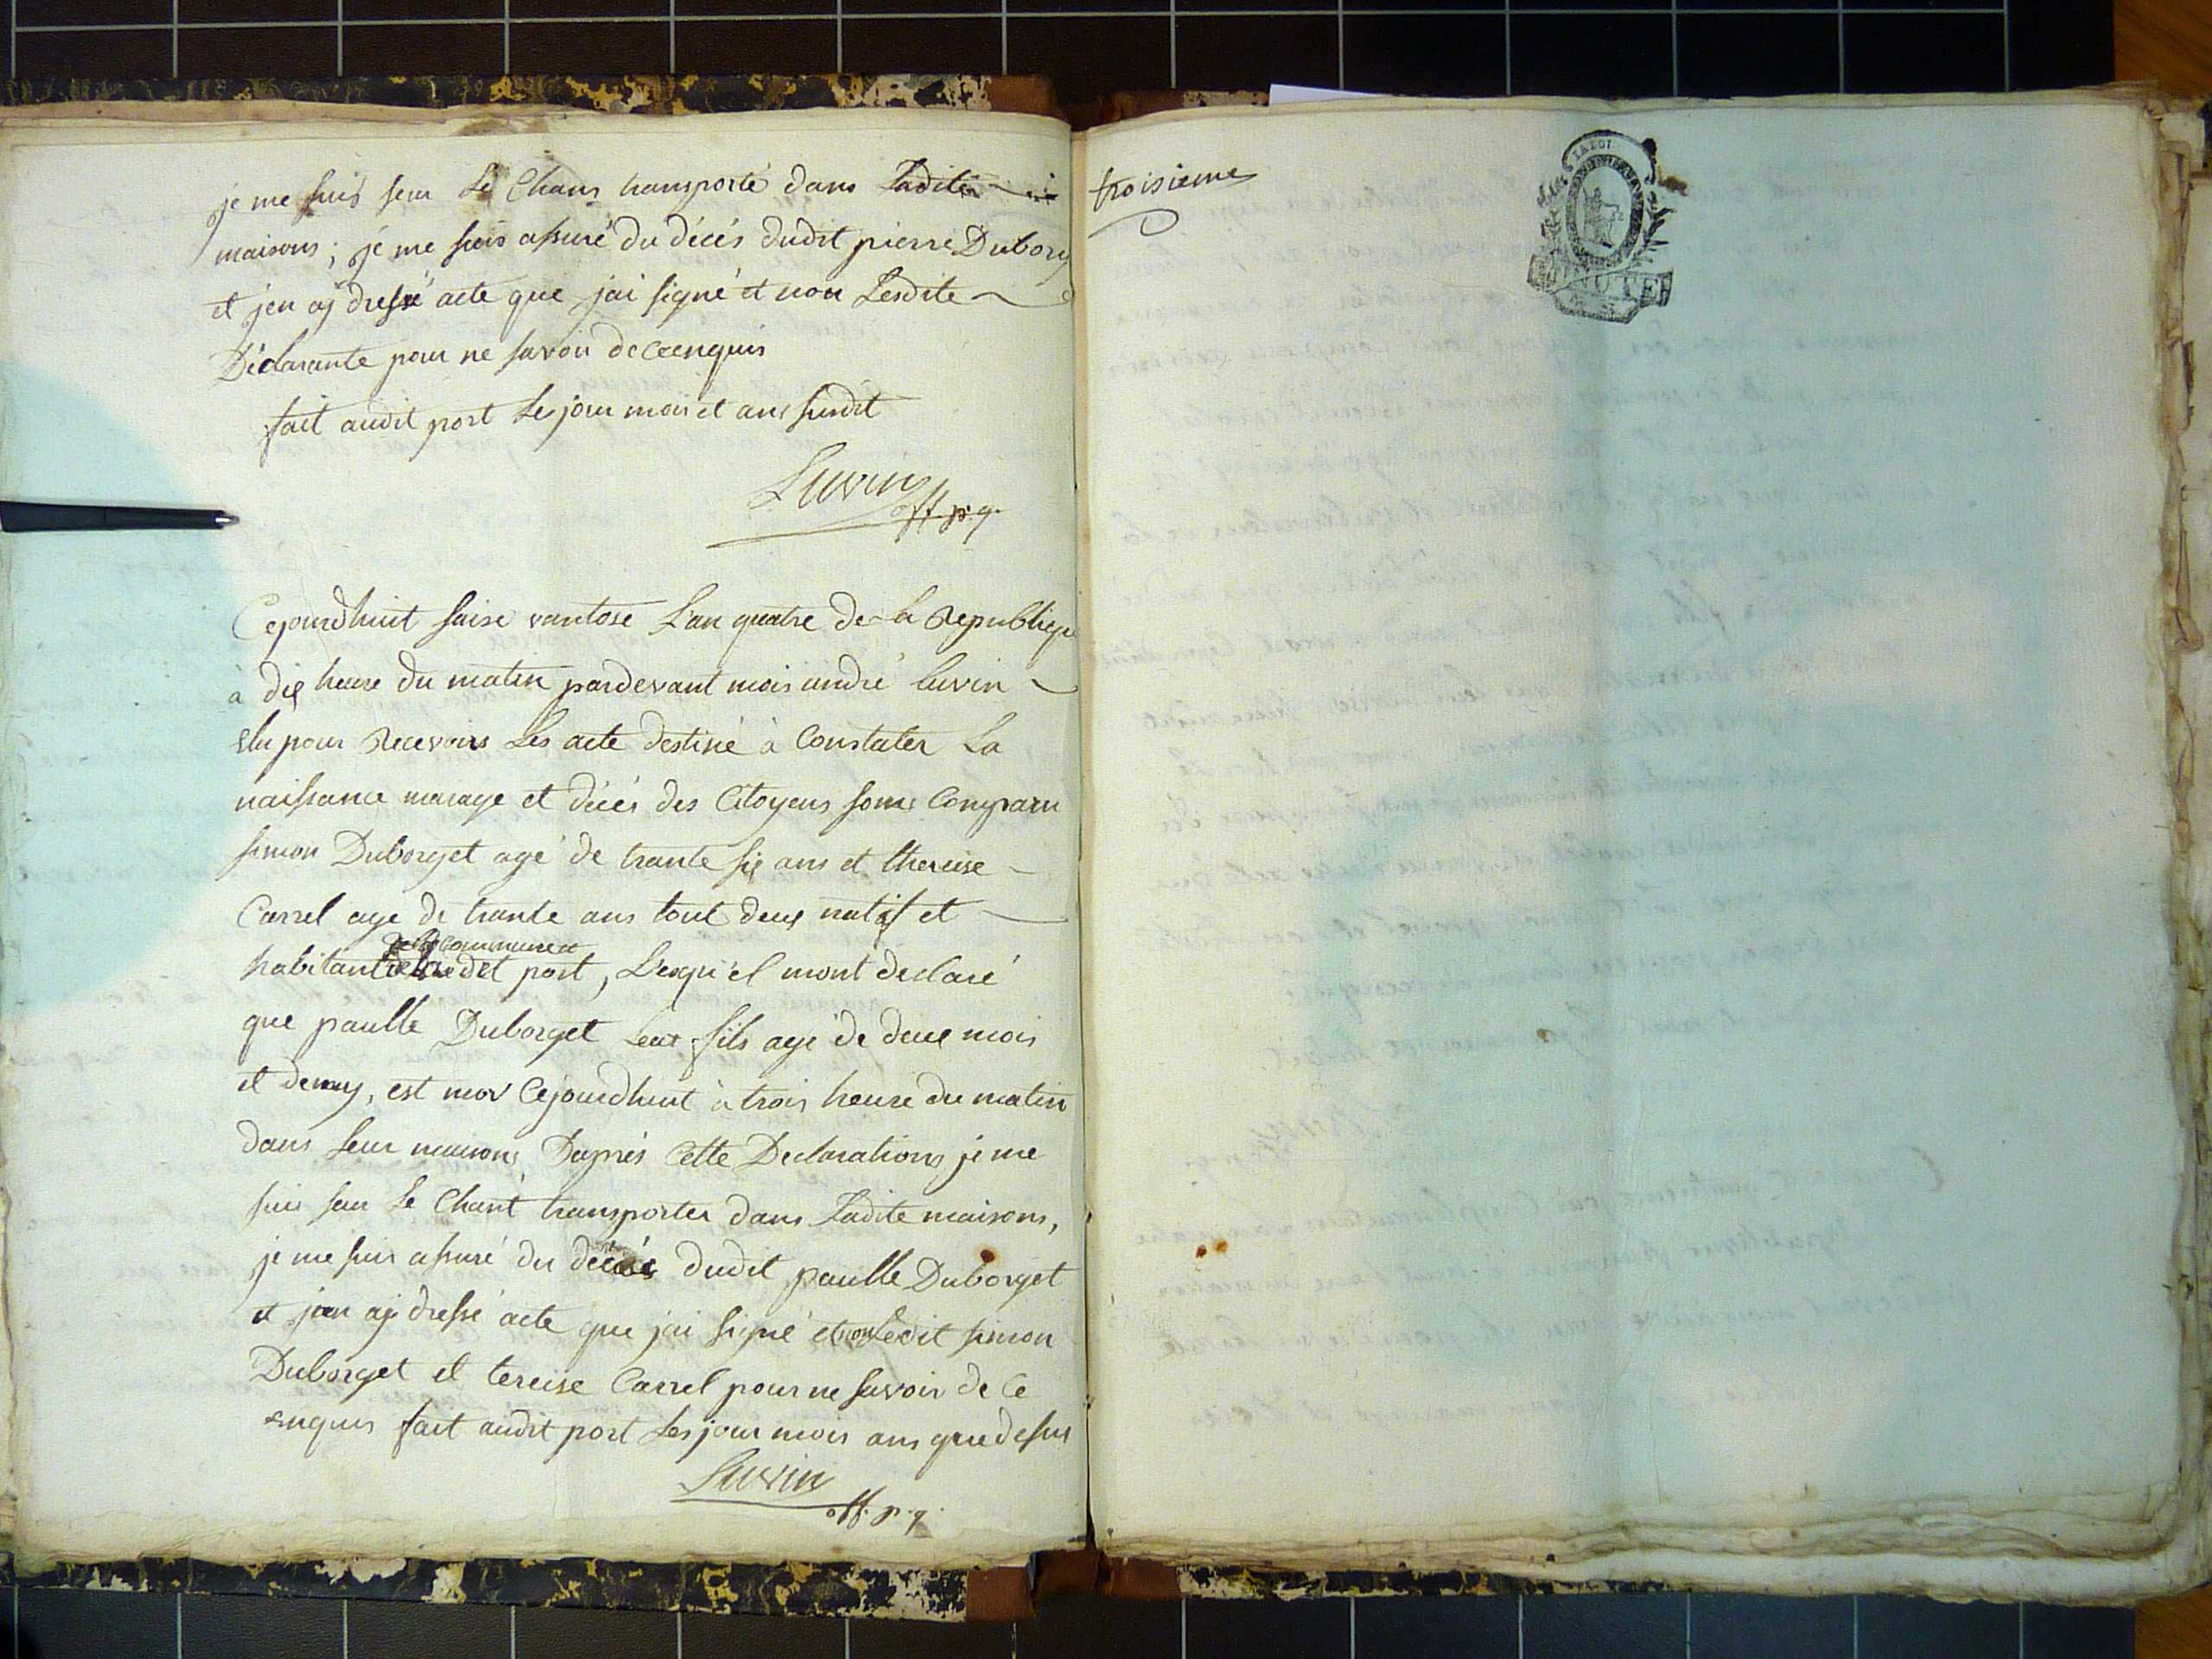 je me suis seur Le Chans transporté dans Ladite
maisons; je me suis assuré du décés dudit pierre Duborg
et jen aj dressé acte que jai signé et non Lesdite
Déclarante pour ne savoir de ce enquis
fait audit port Le jour mois et ans susdit
Luvin
off. p. q.
Cejourdhuit saise vantose L'an quatre de la Republique
à dix heure du matin pardevant mois andré luvin
elu pour Recevoirs Les acte destiné à Constater La
naissance mariage et décés des Citoyens sons Comparu
simon Duborget agé de trante six ans et thereise
Carrel age de trante ans tout deux natif et
de la commune et
habitant dudet port, Lesqu'el mont declaré
que paulle Duborget Leur fils agé de deux mois
et demy, est mor Cejourdhuit à trois heure du matin
dans leur maisons, Daprés Cette Declarations je me
suis seur Le Chant transporter dans Ladite maisons,
je me suis assuré du décés dudit paulle Duborget
et jean aj dressé acte que jai signé et non Ledit simon
Duborget et tereise Carrel pour ne savoir de Ce
enquis fait audit port Les jour mois ans que desus
Luvin
off. p. q.
troisieme
LA LOI
MINUTE